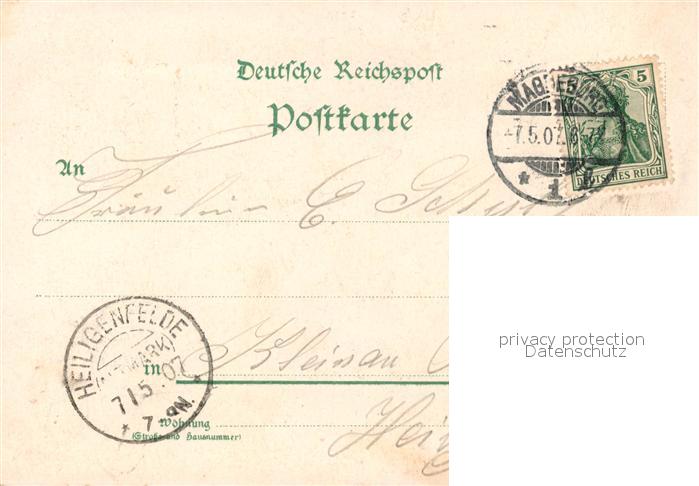 Deutsche Reichspost
Postkarte
MAGDEBURG
-7.5.07. 6-7
* 1
5
DEUTSCHES REICH
An
Fräulein E.
privacy protection
Datenschutz
HEILIGENFELDE
(ALTMARK)
7/5.07
* 7-8N.
in Kleinau
Wohnung
(Straße und Hausnummer)